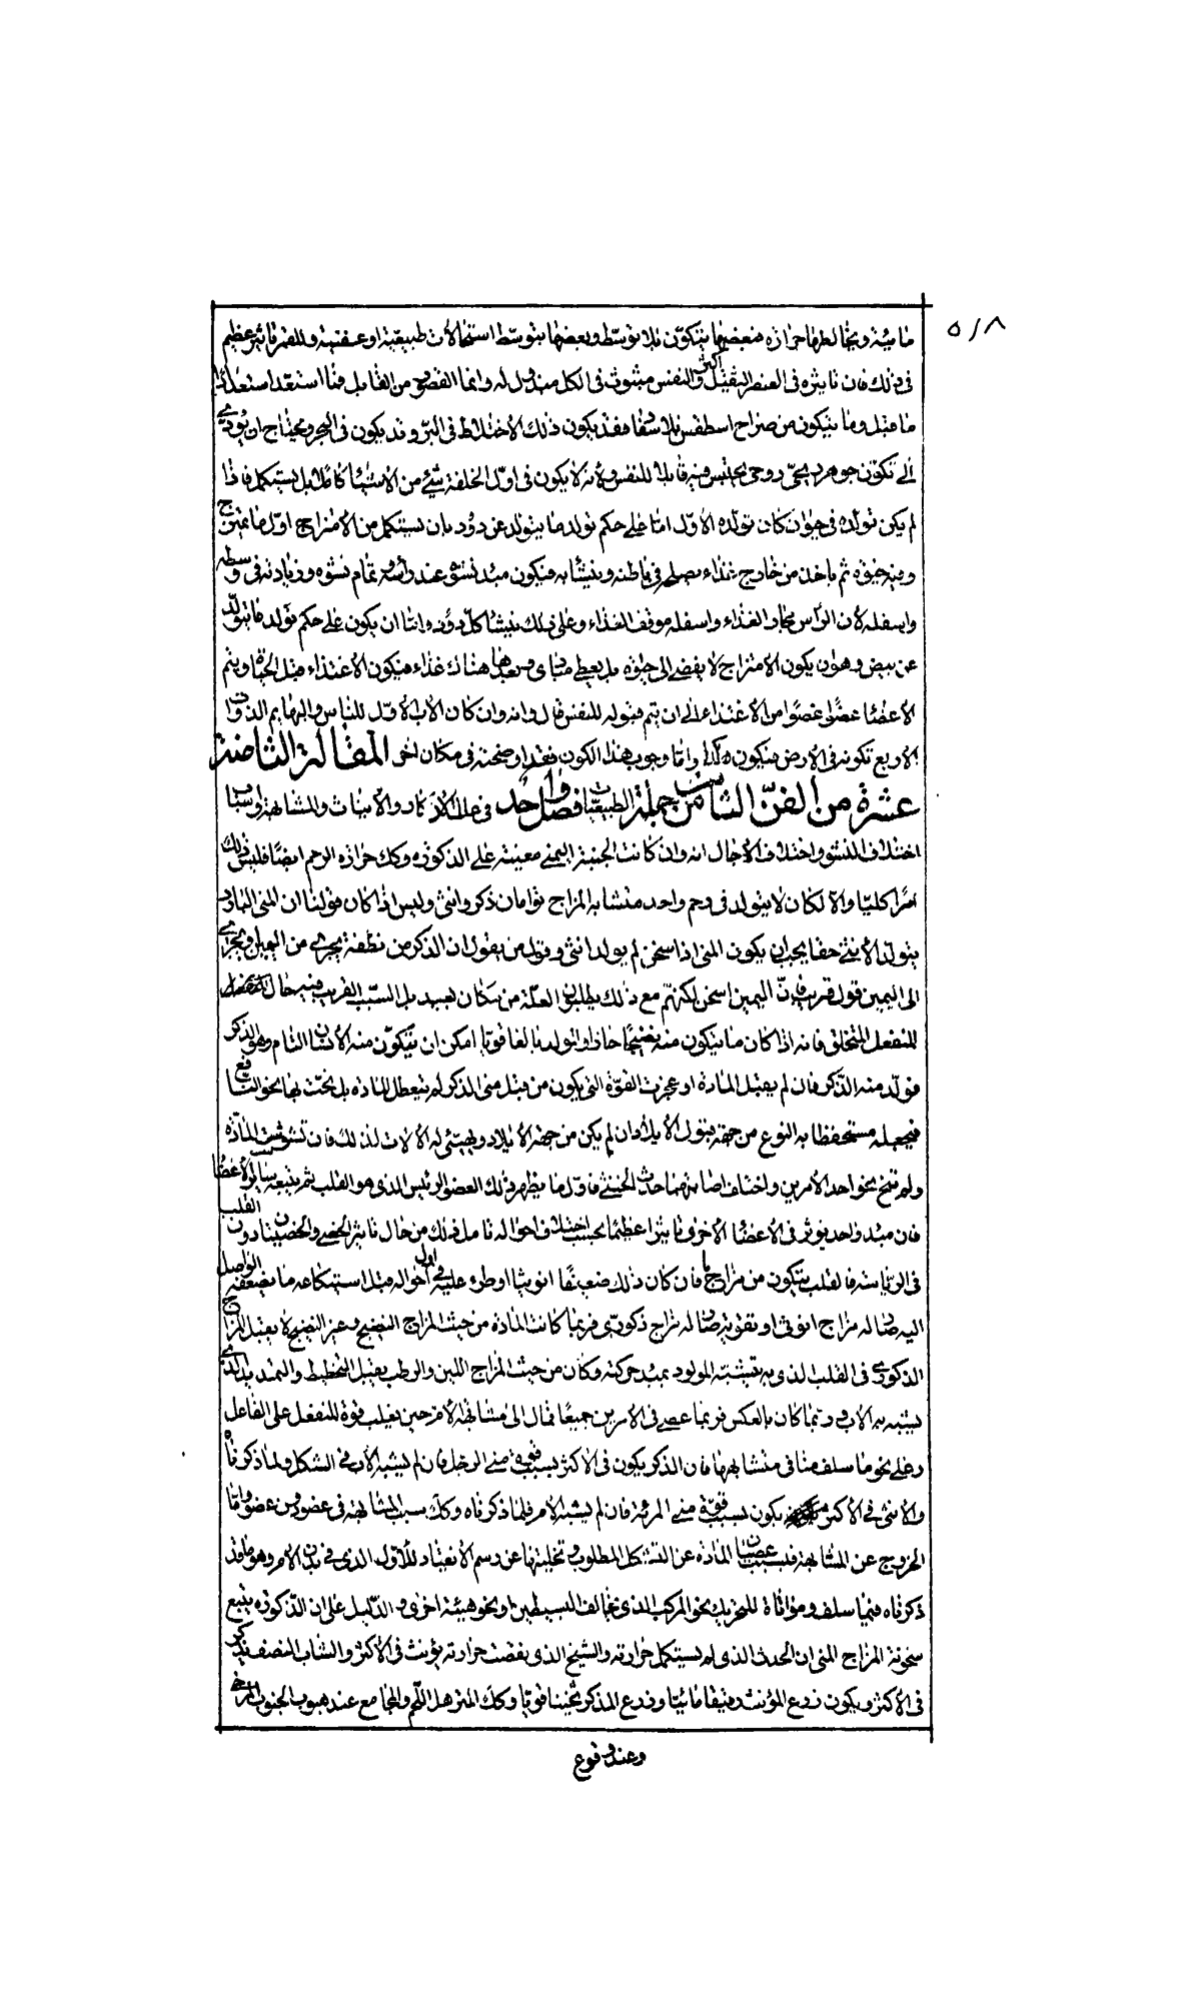 ٥١٨
مائية ويخالطها حرارة فبعضها يتكون بلا توسط وبعضها بتوسط استحالات طبيعية او عفنية وللقمر تأثير عظيم
فى ذلك فان تأثيره فى العنصر الثقيل اكثر والنفس مبثوث فى الكل مبذول له وانما القصور من القابل فما استعد استعدادا
ما قبل وما يتكون من مزاج اسطقس بلا سفاد فقد يكون ذلك الاختلاط فى البر وقد يكون فى البحر ويحتاج ان يؤدى
الى تكون جوهر ريحى روحى يحتبس فيه قابلا للنفس ولانه لا يكون فى اول الخلقة شئ من الاشياء كاملا بل يستكمل فاذا
لم يكن تولده فى حيوان كان تولده الاول اما على حكم تولد ما يتولد عن دود بان يستكمل من الامتزاج اول ما يمتزج
وفيه حيوة ثم ياخذ من خارج غذاء يصلحه فى باطنه وينشأ به فيكون مبدء نشوه عند رأسه وتمام نشوه وزيادته فى وسطه
واسفله لان الرأس مجاز الغذاء واسفله موقف الغذاء وعلى ذلك ينشأ كل دود واما ان يكون على حكم تولد ما يتولد
عن بيض وهو ان يكون الامتزاج لا يفضى الى حيوة بل يعطى مبادى وبعدها هناك غذاء فيكون الاغتذاء قبل الحياة ويتم
الاعضاء عضوا عضوا من الاغتذاء الى ان يتم قبوله للنفس قال وانه وان كان الاب الاول للناس والبهائم الذوات
الاربع تكونه فى الارض فيكون هكذا واما وجوب هذا الكون فقد اوضحته فى مكان اخر المقالة الثامنة
عشرة من الفن الثامن من جملة الطبيعيات فصل واحد فى علل الاذكار والايناث والمشابهة واسباب
اختلاف النشو واختلاف الاجال انه وان كانت الجنبة اليمنى معينة على الذكورة وكك حرارة الرحم ايضا فليس ذلك
امرا كليا والا لكان لا يتولد فى رحم واحد متشابه المزاج توأمان ذكر وانثى وليس اذا كان قولنا ان المنى البارد
يتولد الانثى حقا يجب ان يكون المنى اذا سخن لم يولد انثى وقول من يقول ان الذكر من نطفة يجرى من اليمين ويجرى
الى اليمين قول قريب فان اليمين اسخن لكنهم مع ذلك يطلبون العلة من مكان بعيد بل السبب القريب فيه حال
للمنفعل المتخلق فانه اذا كان ما يتكون منه نضيجا حارا والتولد بالغا قويا امكن ان يتكون منه الانسان التام وهو الذكر
فولد منه الذكر فان لم يقبل المادة او عجزت القوة التى يكون من قبل منى الذكر لم يتعطل المادة بل نحت بها نحو النافع
فيجعله مستحفظا به النوع من جهة قبول الايلاد ان لم يكن من جهة الايلاد ويهيئ له الالات لذلك فان تشوشت المادة
ولم تنح نحو احد الامرين واختلف اصابتهما حدث الخنثى فاول ما يظهر ذلك العضو الرئيس الذى هو القلب ثم يتبعه ساير الاعضاء
فان مبدء واحد يؤثر فى الاعضاء الاخرى تأثيرا عظيما بحسب اختلاف احواله تأمل ذلك من حال تأثير الخصى والخصيتان دون القلب
فى الرياسة فالقلب يتكون من مزاج ما فان كان ذلك ضعيفا انوثيا او طرء عليه فى اول احواله قبل استحكامه ما يضعفه الواصل
اليه صار له مزاج انوثى او تقويه صار له مزاج ذكورى فربما كانت المادة من حيث المزاج النضيج وغير النضيج لا يقبل المزاج
الذكورى فى القلب الذى به يتشبه المولود بمبدء حركته وكان من حيث المزاج اللين والرطب يقبل التخطيط والتمديد الذى
يشبه به الاب وربما كان بالعكس فربما عصى فى الامرين جميعا فمال الى مشابهة الام حين يغلب قوة المنفعل على الفاعل
وعلى نحو ما سلف منا فى متشابهها فان الذكر يكون فى الاكثر بسبب قوة منى الرجل فان لم يشبه الاب فى الشكل ولما ذكرناه
والانثى فى الاكثر يكون بسبب قوة منى المرءة فان لم يشبه الام فلما ذكرناه وكك سبب المشابهة فى عضو دون عضو واما
الخروج عن المشابهة فبسبب عصيان المادة عن الشكل المطلوب وتخليتها عن رسم الانقياد للاول الذى فى بدن الام وهو ما قد
ذكرناه فيما سلف ومؤاتاة للتحريك نحو المركب الذى يخالف البسيطين او نحو هيئة اخرى والدليل على ان الذكورة يتبع
سخونة المزاج المنى ان الحدث الذى لم يستكمل حرارته والشيخ الذى نقصت حرارته يؤنث فى الاكثر والشاب النصف يذكر
فى الاكثر ويكون زرع المؤنث رقيقا مائيا وزرع المذكر ثخينا قويا وكك المترهل اللحم والمجامع عند هبوب الجنوب المرخى
وعند وقوع